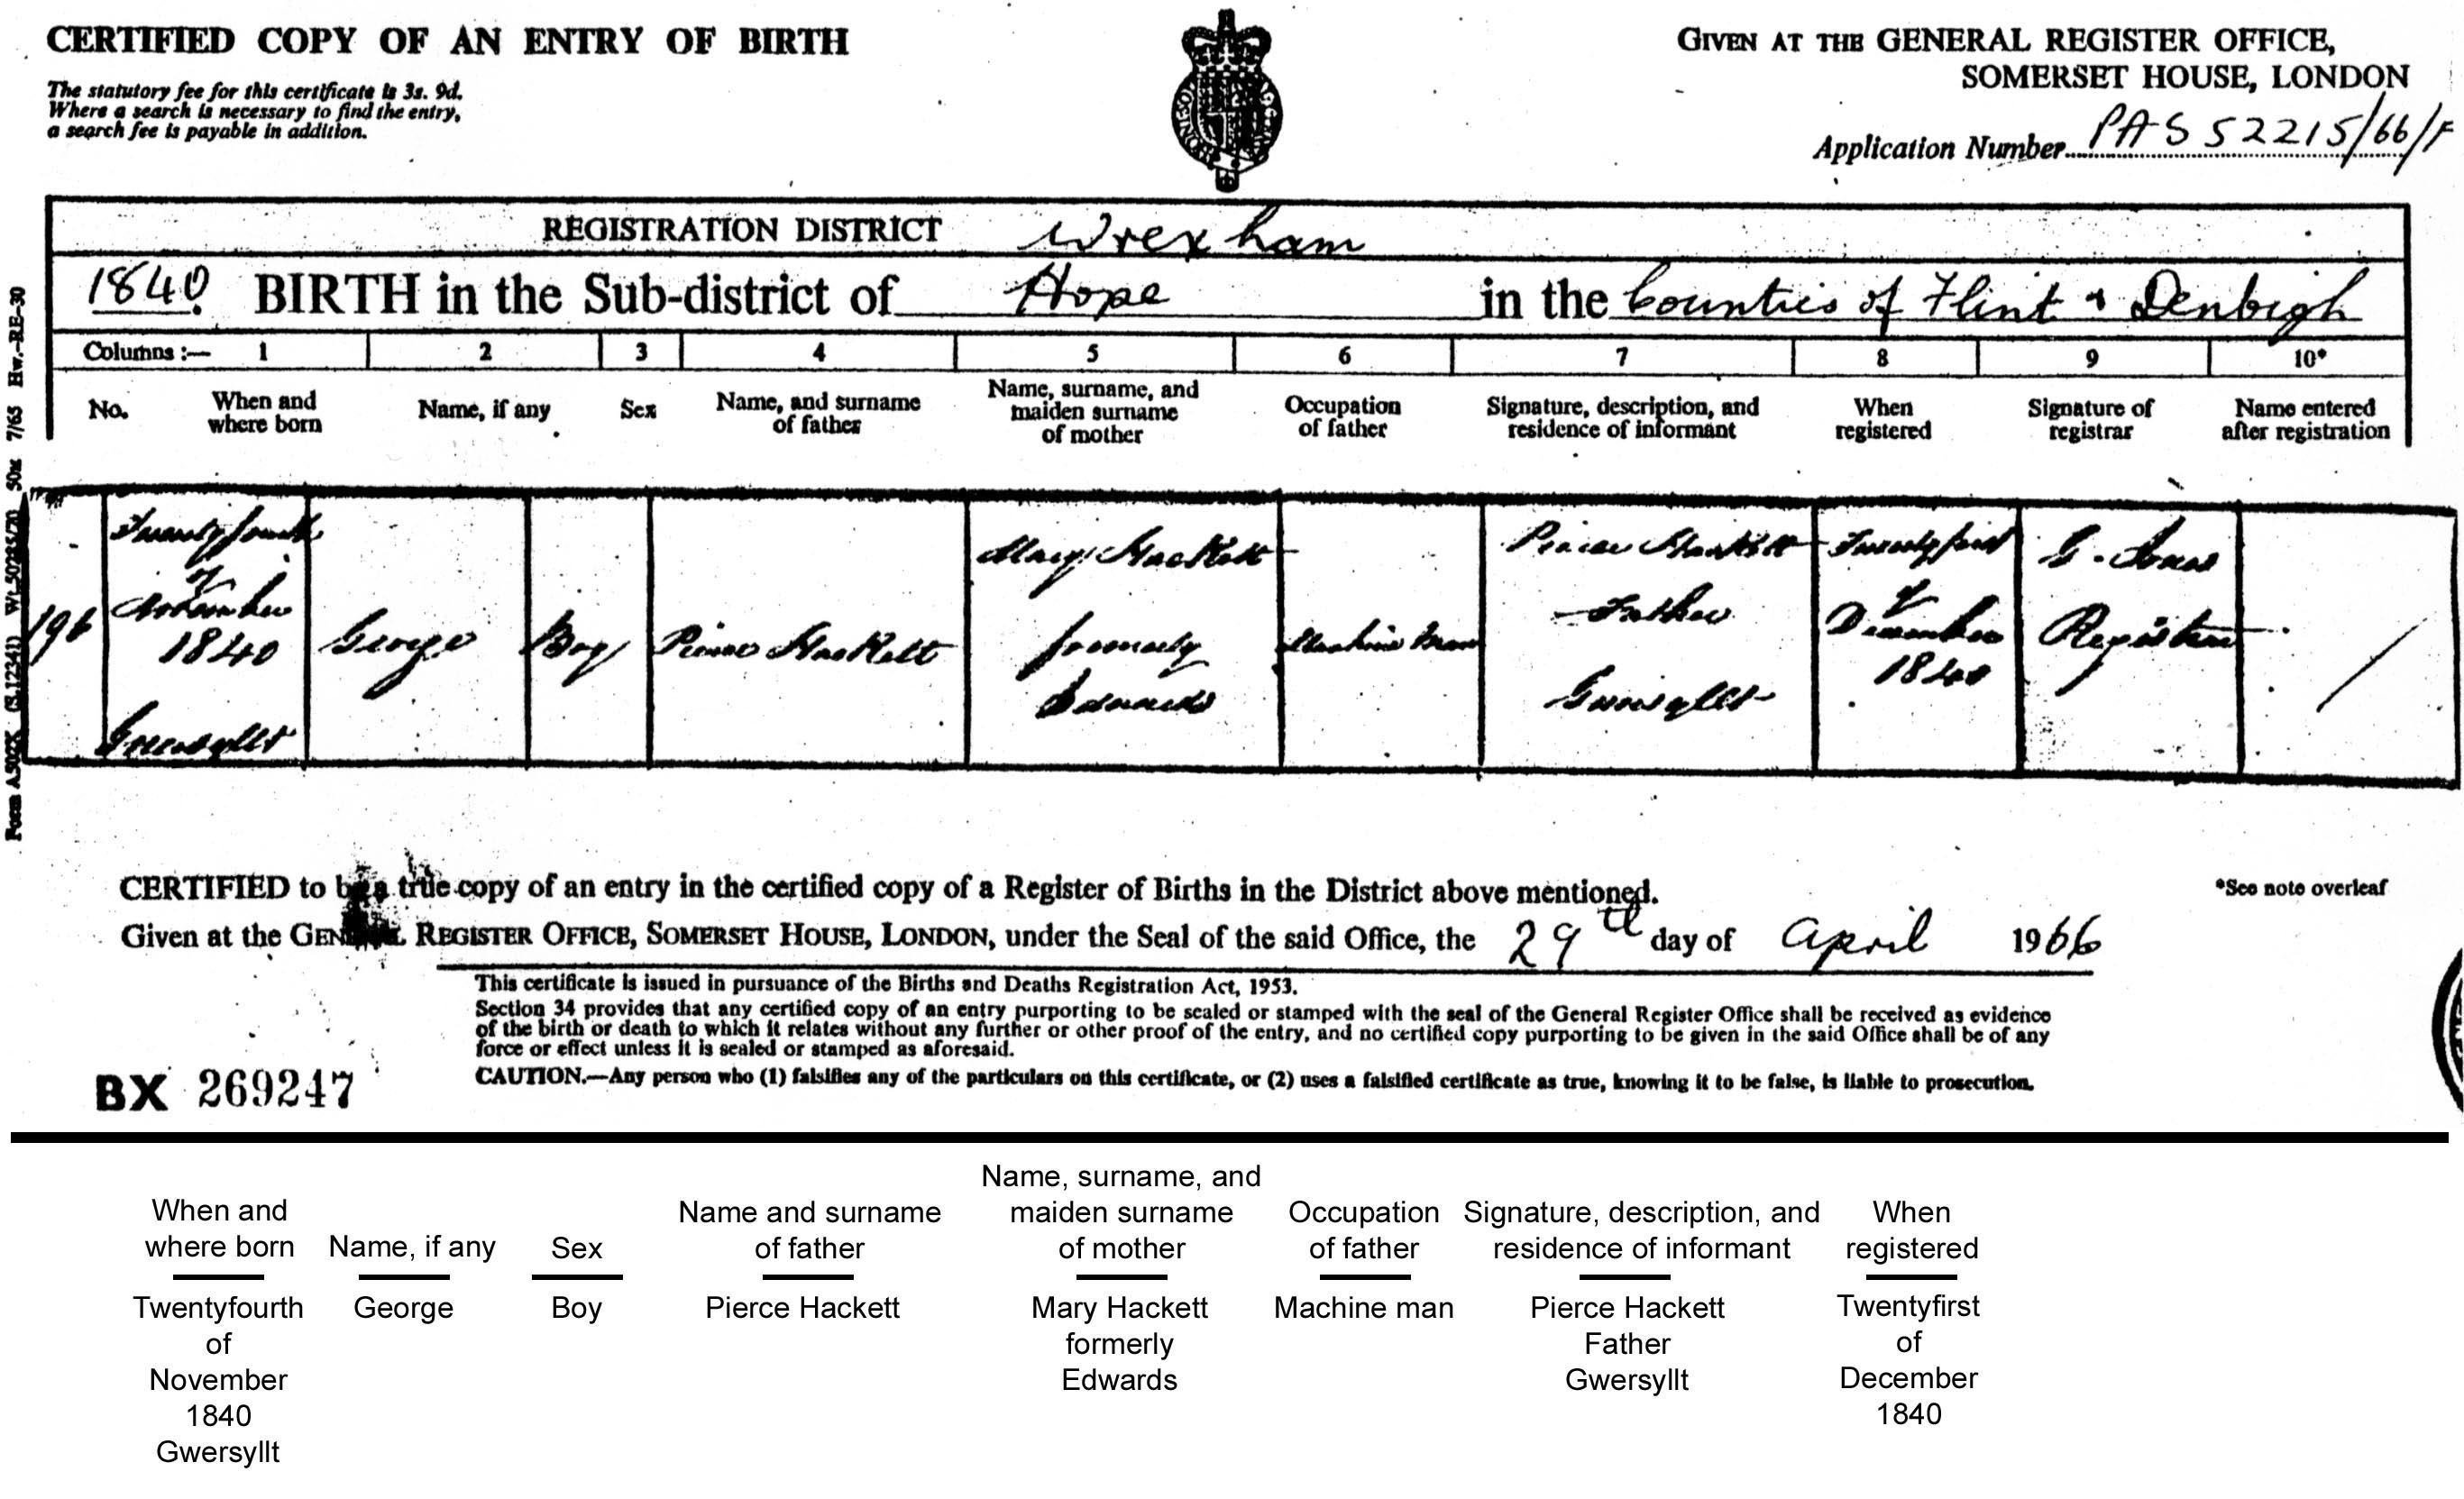 CERTIFIED COPY OF AN ENTRY OF BIRTH
The statutory fee for this certificate is 3s. 9d.
Where a search is necessary to find the entry,
a search fee is payable in addition.
GIVEN AT THE GENERAL REGISTER OFFICE,
SOMERSET HOUSE, LONDON
Application Number PAS 52215/66/F
REGISTRATION DISTRICT Wrexham
1840. BIRTH in the Sub-district of Hope in the Counties of Flint & Denbigh
Columns :— 1 2 3 4 5 6 7 8 9 10*
No.
When and
where born
Name, if any
Sex
Name, and surname
of father
Name, surname, and
maiden surname
of mother
Occupation
of father
Signature, description, and
residence of informant
When
registered
Signature of
registrar
Name entered
after registration
196
Twentyfourth
of
November
1840
Gwersyllt
George
Boy
Pierce Hackett
Mary Hackett
formerly
Edwards
Machine Man
Pierce Hackett
Father
Gwersyllt
Twentyfirst
of
December
1840
G. Jones
Registrar
CERTIFIED to be a true copy of an entry in the certified copy of a Register of Births in the District above mentioned.
*See note overleaf
Given at the GENERAL REGISTER OFFICE, SOMERSET HOUSE, LONDON, under the Seal of the said Office, the 29th day of April 1966
This certificate is issued in pursuance of the Births and Deaths Registration Act, 1953.
Section 34 provides that any certified copy of an entry purporting to be sealed or stamped with the seal of the General Register Office shall be received as evidence
of the birth or death to which it relates without any further or other proof of the entry, and no certified copy purporting to be given in the said Office shall be of any
force or effect unless it is sealed or stamped as aforesaid.
CAUTION.—Any person who (1) falsifies any of the particulars on this certificate, or (2) uses a falsified certificate as true, knowing it to be false, is liable to prosecution.
BX 269247
When and
where born
Twentyfourth
of
November
1840
Gwersyllt
Name, if any
George
Sex
Boy
Name and surname
of father
Pierce Hackett
Name, surname, and
maiden surname
of mother
Mary Hackett
formerly
Edwards
Occupation
of father
Machine man
Signature, description, and
residence of informant
Pierce Hackett
Father
Gwersyllt
When
registered
Twentyfirst
of
December
1840